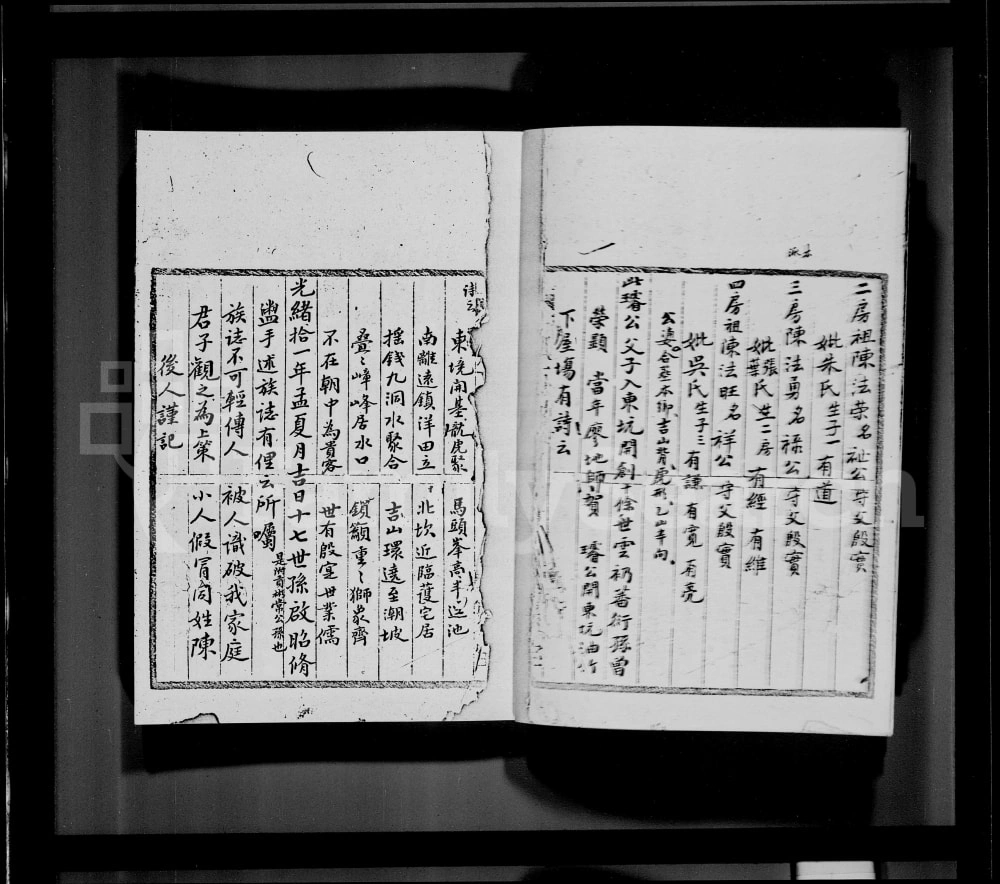 二房祖陳法荣名祉公守父殷實
妣朱氏生子一 有道
三房陳法勇名禄公守父殷實
妣張葉氏生二房 有經 有維
四房祖陳法旺名祥公 守父殷實
妣吳氏生子三 有諒 有寬 有亮
公婆合墓本鄉吉山背虎形乙山辛向
此璿公父子入東坑開創十餘世雲礽蕃衍孫曾
荣顯 當年廖地師賀 璿公開東坑油竹
下屋場有詩云
詩云
東境開基猷虎聚 馬頭峯高半巡池
南離遠鎖洋田立 北坎近臨護宅居
摇錢九洞水聚合 吉山環遠至潮坡
疊々嶂峰居水口 鎖籲重々獅象齊
不在朝中為貴客 世有殷寔世業儒
光緒拾一年孟夏月吉日十七世孫啟昭脩
盥手述族誌有俚云所囑 是附有彬常公孫也
族誌不可輕傳人 被人識破我家庭
君子觀之為上策 小人假冒同姓陳
後人謹記